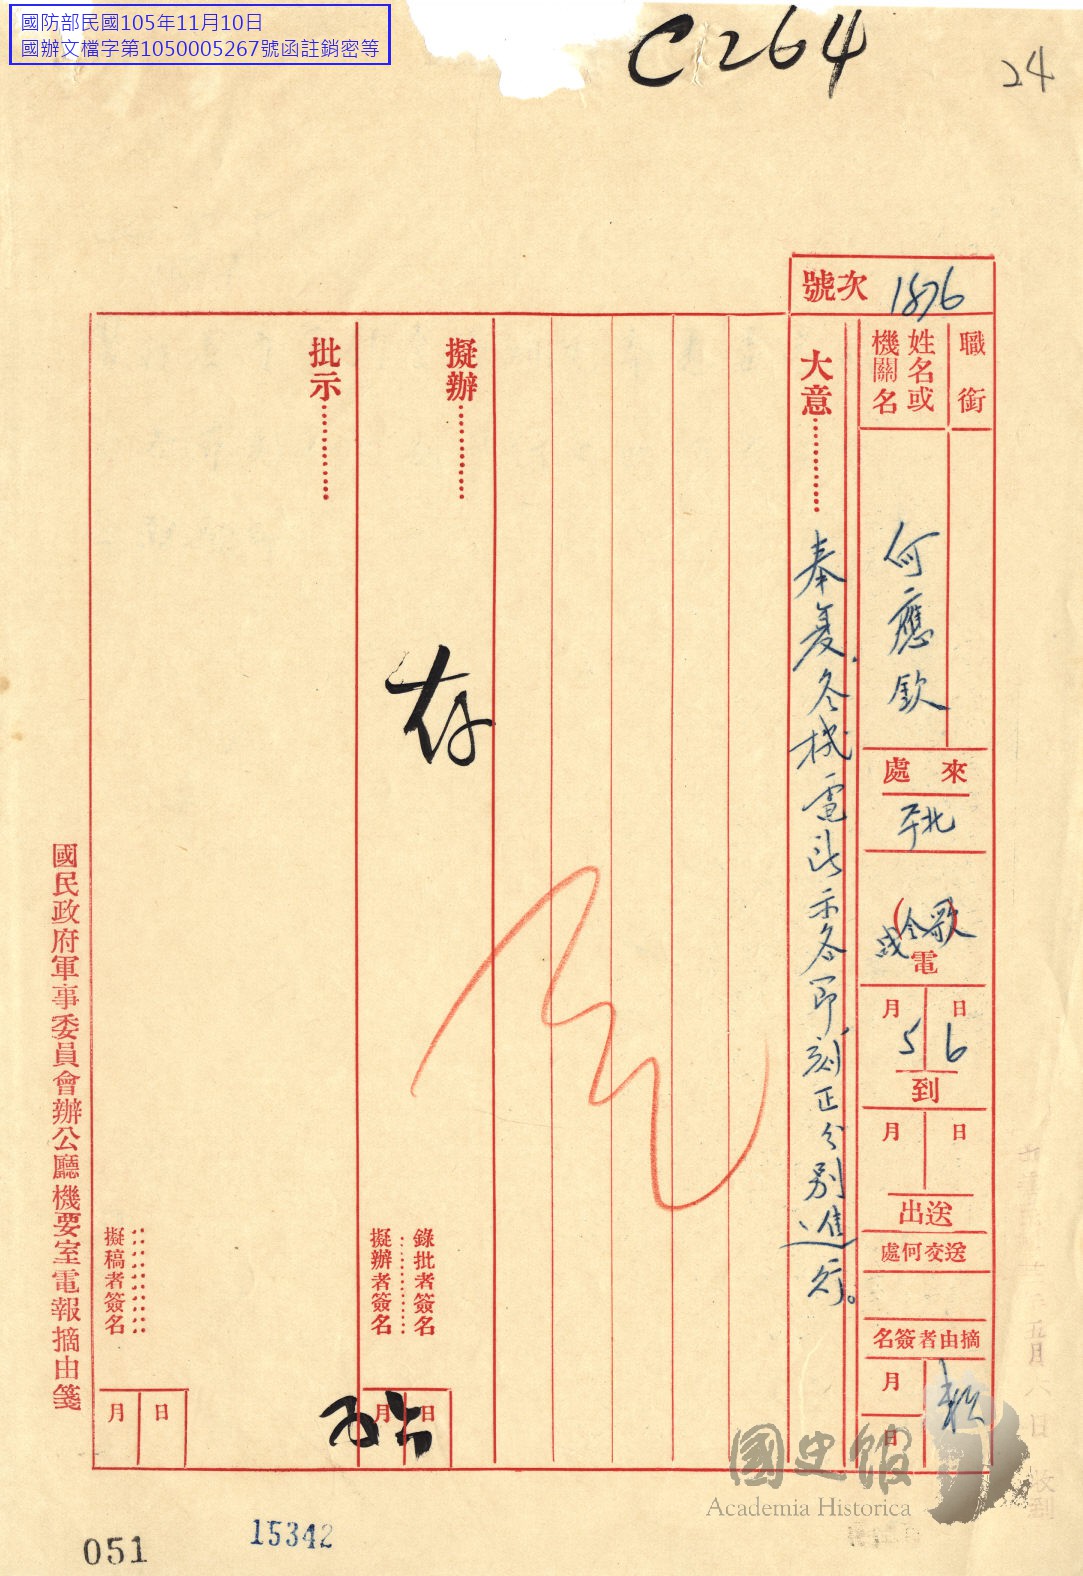 國防部民國105年11月10日
國辦文檔字第1050005267號函註銷密等
C264
24
號次 1876
職銜
姓名或
機關名
何應欽
來處
北平
歌
電
月 5 日 6
到
月 日
送出
送交何處
摘由者簽名
月
日
大意…………
奉复冬機電所示各節刻正分別進行。
擬辦…………
存
錄批者簽名
擬辦者簽名
月 日
批示…………
擬稿者簽名
月 日
國民政府軍事委員會辦公廳機要室電報摘由箋
五月六日 收到
國史館
Academia Historica
15342
051